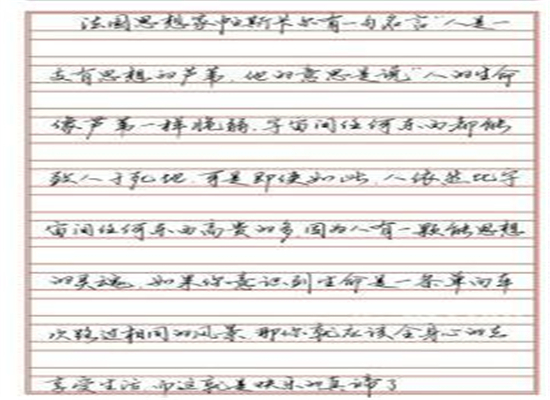 法国思想家帕斯卡尔有一句名言"人是一
支有思想的芦苇,他的意思是说"人的生命
像芦苇一样脆弱,宇宙间任何东西都能
致人于死地,可是即使如此,人依然比宇
宙间任何东西高贵的多,因为人有一颗能思想
的灵魂,如果你意识到生命是一条单向车
次路过相同的风景,那你就应该全身心的去
享受生活,而这就是快乐的真谛了